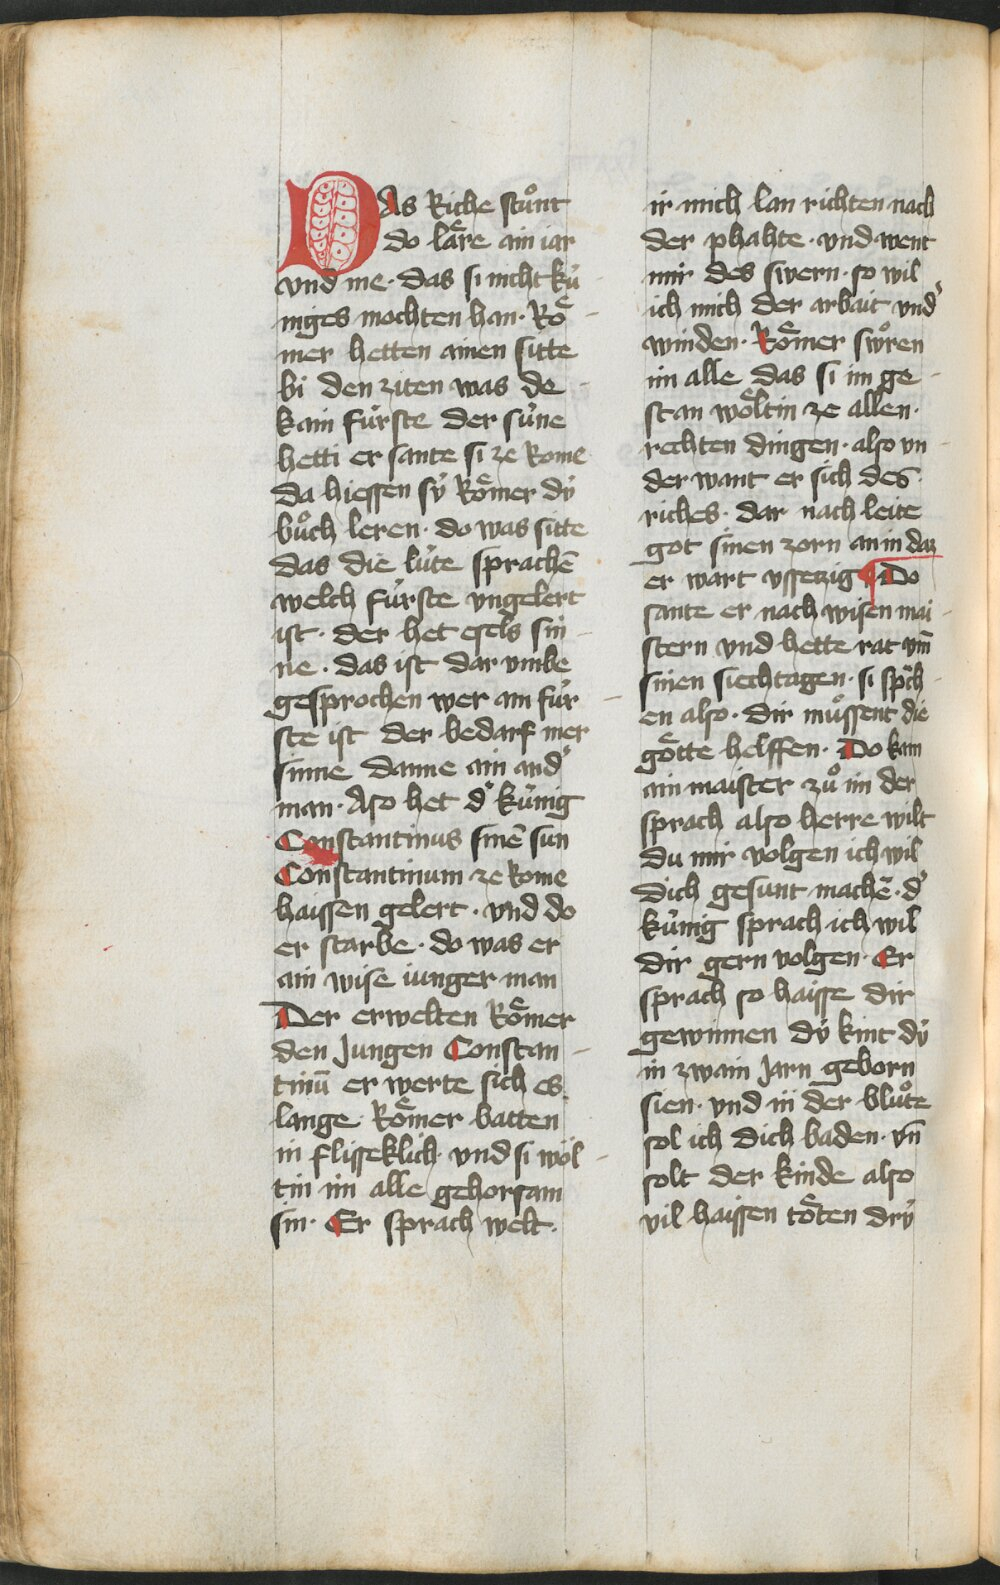 Das Riche stuͦnt
do laͤre ain iar
vnd me · das si nicht kuͤ
niges mochten han · Roͤ -
mer hetten ainen sitte
bi den ziten was de -
kain fuͤrste der suͤne
hetti er sante si ze Rome
da hiessen sÿ Roͤmer dÿ
buͦch leren · do was sitte
das die luͤte sprachē
welch fuͤrste vngelert
ist · der het esels sin -
ne · das ist dar vmbe
gesprochen wer ain fuͤr -
ste ist der bedarf mer
sinne danne ain and᾽
man · Aso het d᾽ kuͤnig
Constantinus sinē sun
Constantinum ze Rome
haissen gelert · vnd do
er starbe · do was er
ain wise iunger man
Der erwelten Roͤmer
den Jungen Constan -
tinū er werte sich es
lange · Roͤmer batten
in flisseklich · vnd si woͤl -
tin im alle gehorsam
sin · Er sprach welt ·
ir mich lan richten nach
der phahte · vnd went
mir des swern · so wil
ich mich der arbait vnd᾽
winden · Roͤmer swoͤren
im alle das si im ge -
stan woͤltin ze allen ·
rechten dingen · also vn -
der want er sich des ·
riches · dar nach leite
got sinen zorn an in daz
er wart vssetzig ¶ Do
sante er nach wisen mai -
stern vnd hette rat vm̄
sinen siechtagen · si spͣch -
en also · dir muͤssent die
goͤtte helffen · Do kam
ain maister zuͦ im der
sprach also herre wilt
du mir volgen ich wil
dich gesunt machē · d᾽
kuͤnig sprach ich wil
dir gern volgen · Er
sprach so haisse dir
gewinnen dÿ kint dÿ
in zwain Jarn geborn
sien · vnd in der bluͦte
sol ich dich baden · vn̄
solt der kinde also
vil haissen toͤten drÿ